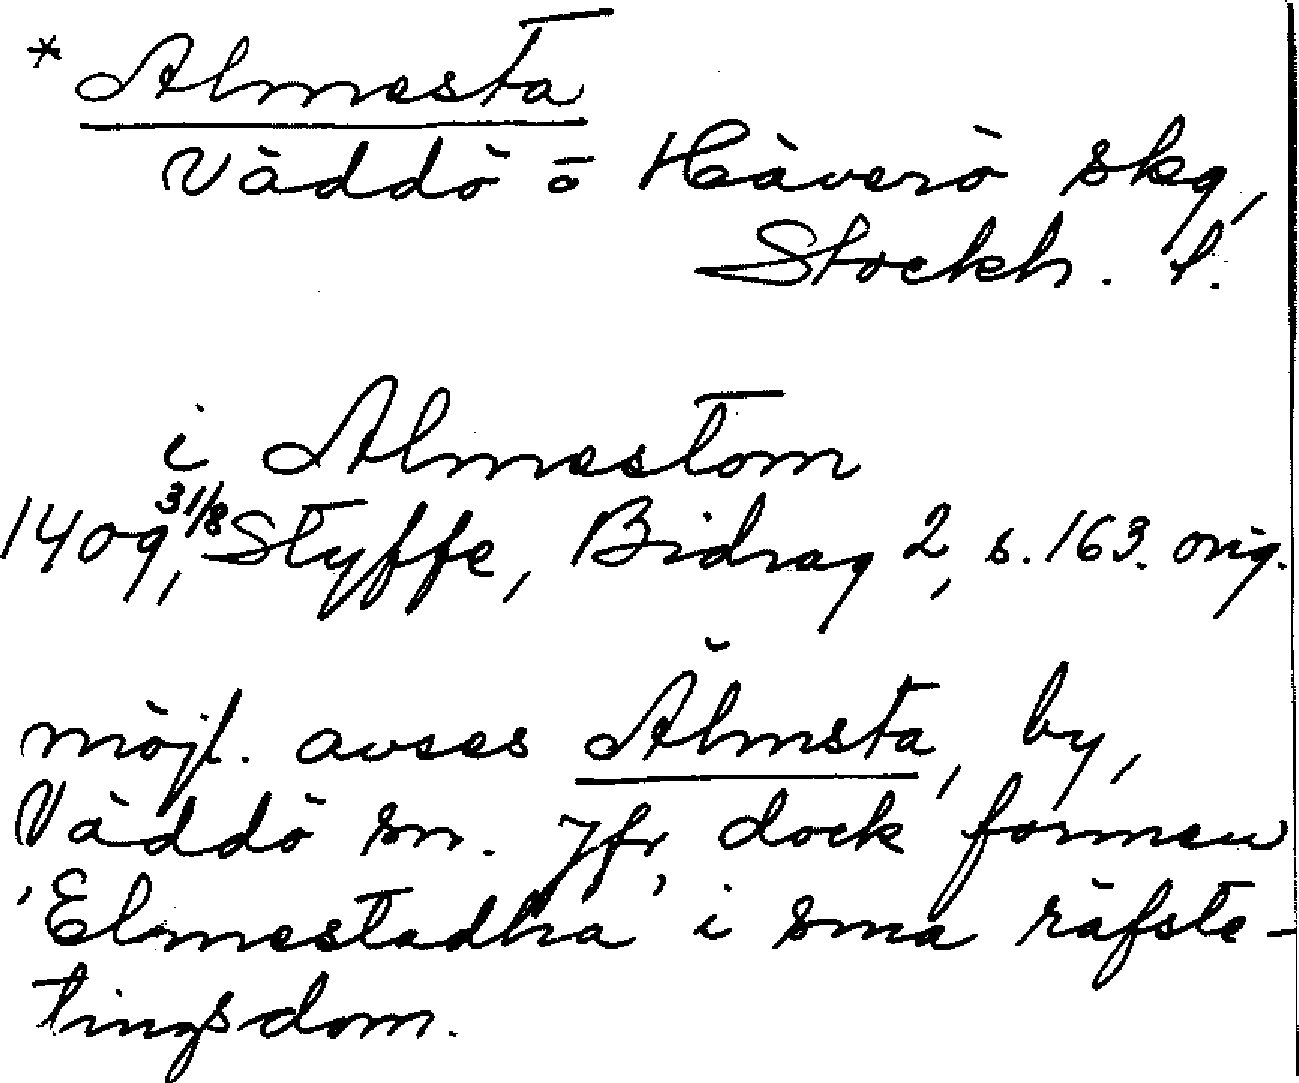 * Almesta
Väddö o Häverö skg,
Stockh. l.
i Almestom
1409 31/8, Styffe, Bidrag 2, s. 163. orig.
möjl. avses Älmsta, by,
Väddö sn. Jfr dock formen
'Elmestadha' i sma räfste-
tingsdom.